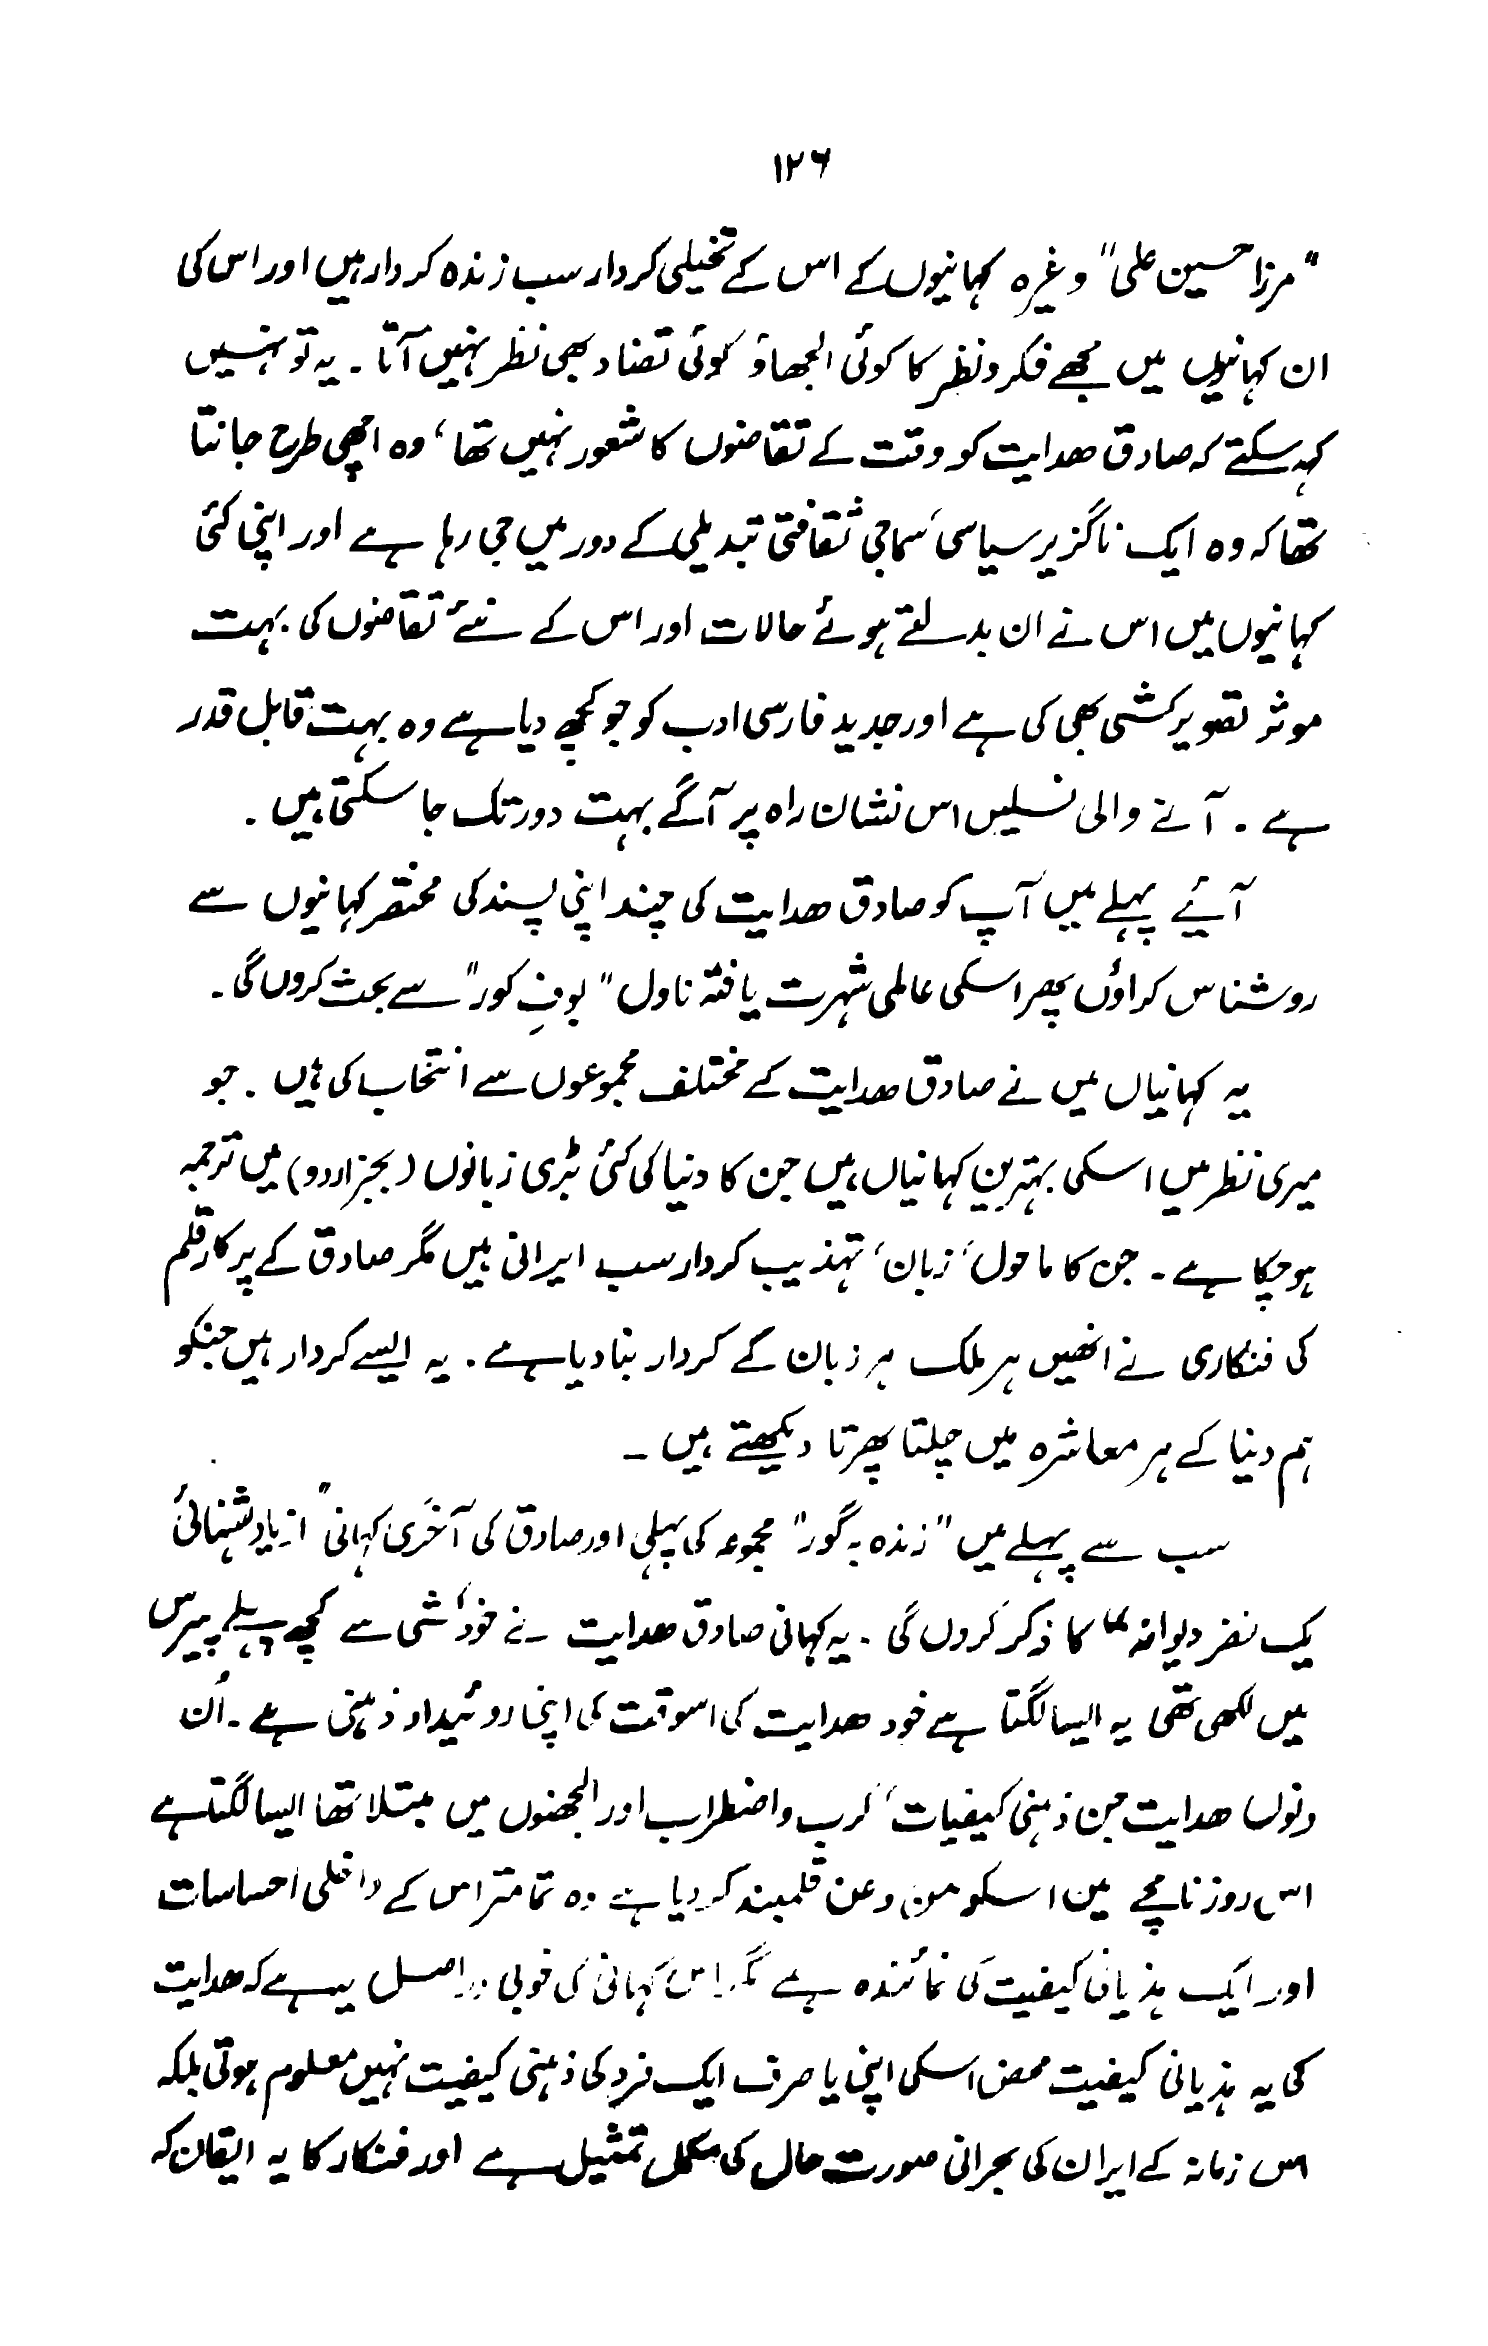 ۱۲۶
"مرزا حسین علی" وغیرہ کہانیوں کے اس کے تخیلی کردار سب زندہ کردار ہیں اور اس کی
ان کہانیوں میں مجھے فکر و نظر کا کوئی الجھاؤ کوئی تضاد بھی نظر نہیں آتا ۔ یہ تو نہیں
کہہ سکتے کہ صادق ھدایت کو وقت کے تقاضوں کا شعور نہیں تھا، وہ اچھی طرح جانتا
تھا کہ وہ ایک ناگزیر سیاسی، سماجی ثقافتی تبدیلی کے دور میں جی رہا ہے اور اپنی کئی
کہانیوں میں اس نے ان بدلتے ہوئے حالات اور اس کے نئے تقاضوں کی بہت
موثر تصویر کشی بھی کی ہے اور جدید فارسی ادب کو جو کچھ دیا ہے وہ بہت قابل قدر
ہے ۔ آنے والی نسلیں اس نشان راہ پر آگے بہت دور تک جا سکتی ہیں ۔
آئیے پہلے میں آپ کو صادق ھدایت کی چند اپنی پسند کی مختصر کہانیوں سے
روشناس کراؤں پھر اسکی عالمی شہرت یافتہ ناول "بوفِ کور" سے بحث کروں گی۔
یہ کہانیاں میں نے صادق ھدایت کے مختلف مجموعوں سے انتخاب کی ہیں ۔ جو
میری نظر میں اسکی بہترین کہانیاں ہیں جن کا دنیا کی کئی بڑی زبانوں (بجز اردو) میں ترجمہ
ہو چکا ہے ۔ جن کا ماحول، زبان، تہذیب کردار سب ایرانی ہیں مگر صادق کے پرکار قلم
کی فنکاری نے انھیں ہر ملک ہر زبان کے کردار بنا دیا ہے ۔ یہ ایسے کردار ہیں جنکو
ہم دنیا کے ہر معاشرہ میں چلتا پھرتا دیکھتے ہیں ۔
سب سے پہلے میں "زندہ بہ گور" مجموعہ کی پہلی اور صادق کی آخری کہانی "از یادشہنائی
یک نفر دیوانہ" کا ذکر کروں گی ۔ یہ کہانی صادق ھدایت نے خودکشی سے کچھ پہلے پیرس
میں لکھی تھی یہ ایسا لگتا ہے خود ھدایت کی اسوقت کی اپنی روئیداد ذہنی ہے ۔ اُن
دنوں ھدایت جن ذہنی کیفیات، کرب و اضطراب اور الجھنوں میں مبتلا تھا ایسا لگتا ہے
اس روزنامچے میں اسکو من و عن قلمبند کر دیا ہے وہ تمامتر اس کے داخلی احساسات
اور ایک ہذیانی کیفیت کی نمائندہ ہے مگر اس کہانی کی خوبی دراصل یہ ہے کہ ھدایت
کی یہ ہذیانی کیفیت محض اسکی اپنی یا صرف ایک فرد کی ذہنی کیفیت نہیں معلوم ہوتی بلکہ
اس زمانہ کے ایران کی بحرانی صورت حال کی مکمل تمثیل ہے اور فنکار کا یہ ایقان کہ